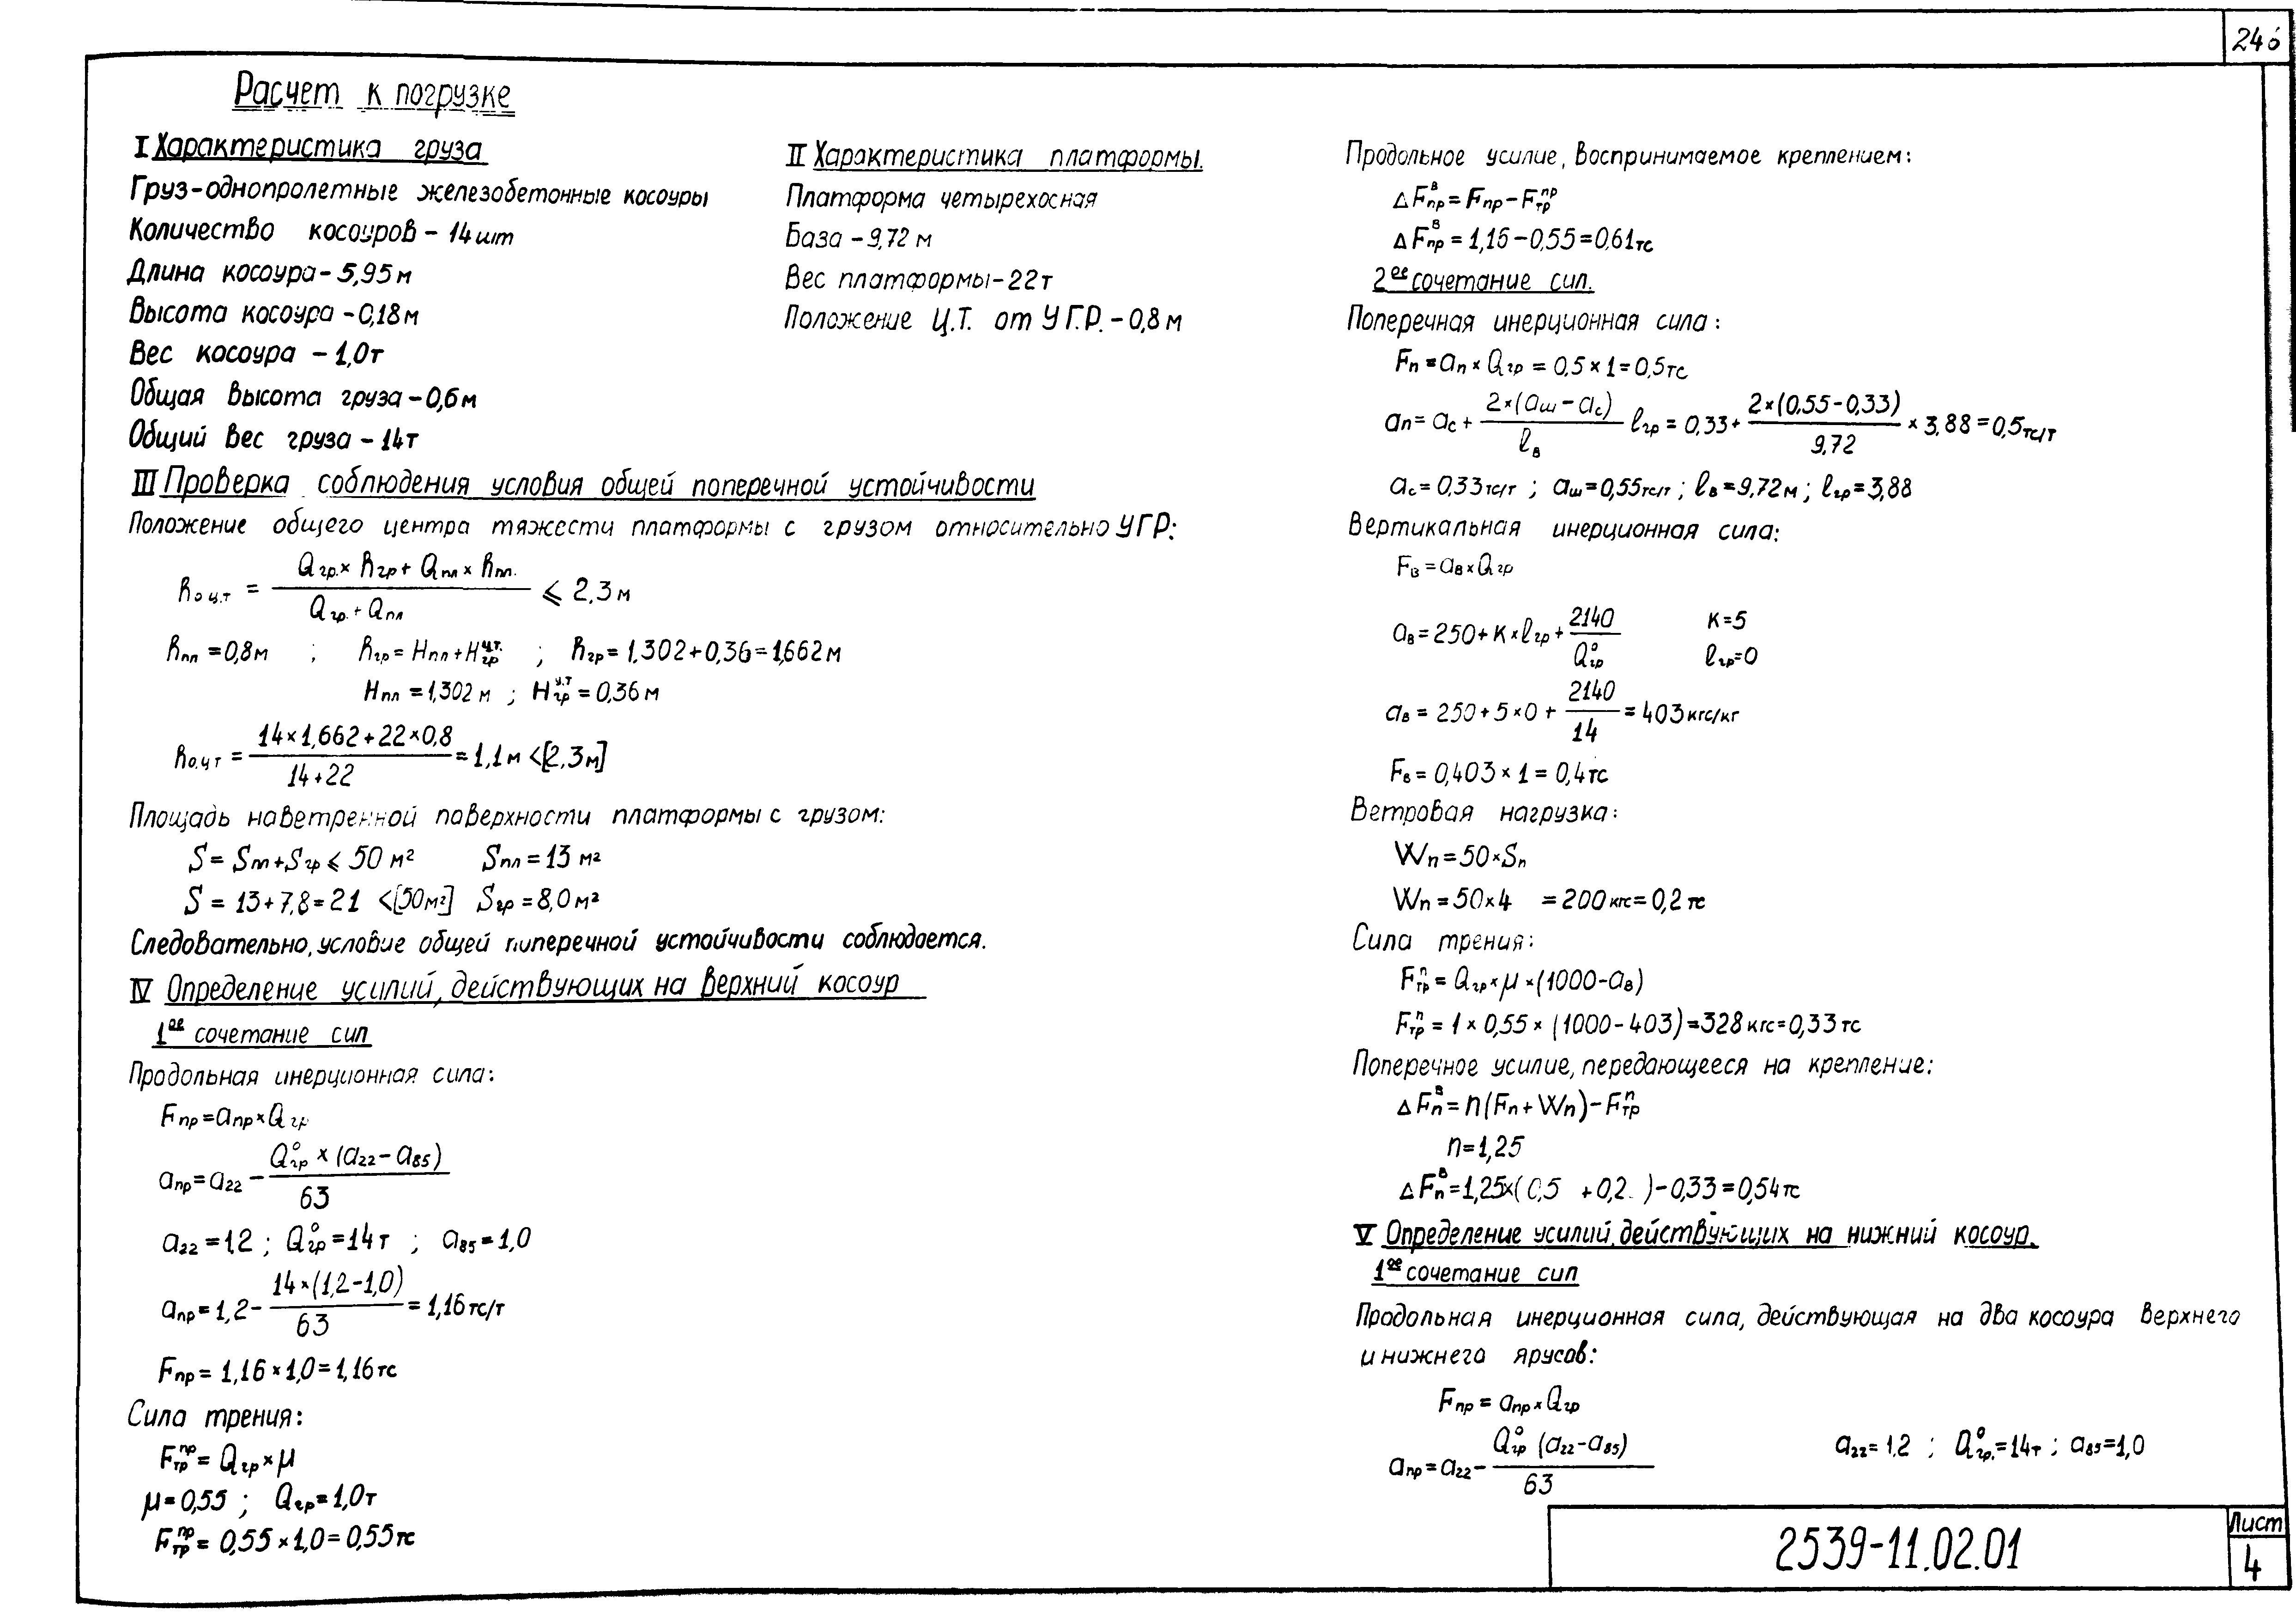 246
Расчет к погрузке
I Характеристика груза
Груз-однопролетные железобетонные косоуры
Количество косоуров - 14 шт
Длина косоура - 5,95 м
Высота косоура - 0,18 м
Вес косоура - 1,0 т
Общая высота груза - 0,6 м
Общий вес груза - 14 т
II Характеристика платформы.
Платформа четырехосная
База - 9,72 м
Вес платформы - 22 т
Положение Ц.Т. от У.Г.Р. - 0,8 м
III Проверка соблюдения условия общей поперечной устойчивости
Положение общего центра тяжести платформы с грузом относительно УГР:
hо ц.т = (Qгр. × hгр + Qпл × hпл.) / (Qгр. + Qпл) ⩽ 2,3 м
hпл = 0,8 м ; hгр = Hпл + Hгр ц.т. ; hгр = 1,302 + 0,36 = 1,662 м
Hпл = 1,302 м ; Hгр ц.т = 0,36 м
hо.ц т = (14 × 1,662 + 22 × 0,8) / (14 + 22) = 1,1 м < [2,3 м]
Площадь наветренной поверхности платформы с грузом:
S = Sпл + Sгр ⩽ 50 м² Sпл = 13 м²
S = 13 + 7,8 = 21 < [50 м²] Sгр = 8,0 м²
Следовательно, условие общей поперечной устойчивости соблюдается.
IV Определение усилий, действующих на верхний косоур
1ое сочетание сил
Продольная инерционная сила:
Fпр = aпр × Qгр
aпр = a22 - Q°гр × (a22 - a85) / 63
a22 = 1,2 ; Q°гр = 14 т ; a85 = 1,0
aпр = 1,2 - 14 × (1,2 - 1,0) / 63 = 1,16 тс/т
Fпр = 1,16 × 1,0 = 1,16 тс
Сила трения:
Fтр пр = Qгр × μ
μ = 0,55 ; Qгр = 1,0 т
Fтр пр = 0,55 × 1,0 = 0,55 тс
Продольное усилие, воспринимаемое креплением:
ΔFпр в = Fпр - Fтр пр
ΔFпр в = 1,16 - 0,55 = 0,61 тс
2ое сочетание сил.
Поперечная инерционная сила:
Fп = aп × Qгр = 0,5 × 1 = 0,5 тс
aп = aс + 2 × (aш - aс) / ℓв ℓгр = 0,33 + 2 × (0.55 - 0,33) / 9,72 × 3,88 = 0,5 тс/т
aс = 0,33 тс/т ; aш = 0,55 тс/т ; ℓв = 9,72 м ; ℓгр = 3,88
Вертикальная инерционная сила:
Fв = aв × Qгр
aв = 250 + К × ℓгр + 2140 / Q°гр К = 5
ℓгр = 0
aв = 250 + 5 × 0 + 2140 / 14 = 403 кгс/кг
Fв = 0,403 × 1 = 0,4 тс
Ветровая нагрузка:
Wп = 50 × Sп
Wп = 50 × 4 = 200 кгс = 0,2 тс
Сила трения:
Fтр п = Qгр × μ × (1000 - aв)
Fтр п = 1 × 0,55 × (1000 - 403) = 328 кгс = 0,33 тс
Поперечное усилие, передающееся на крепление:
ΔFп в = n (Fп + Wп) - Fтр п
n = 1,25
ΔFп в = 1,25 × (0,5 + 0,2 ) - 0,33 = 0,54 тс
V Определение усилий, действующих на нижний косоур.
1ое сочетание сил
Продольная инерционная сила, действующая на два косоура верхнего
и нижнего ярусов:
Fпр = aпр × Qгр
aпр = a22 - Q°гр (a22 - a85) / 63 a22 = 1,2 ; Q°гр. = 14 т ; a85 = 1,0
2539-11.02.01
Лист
4